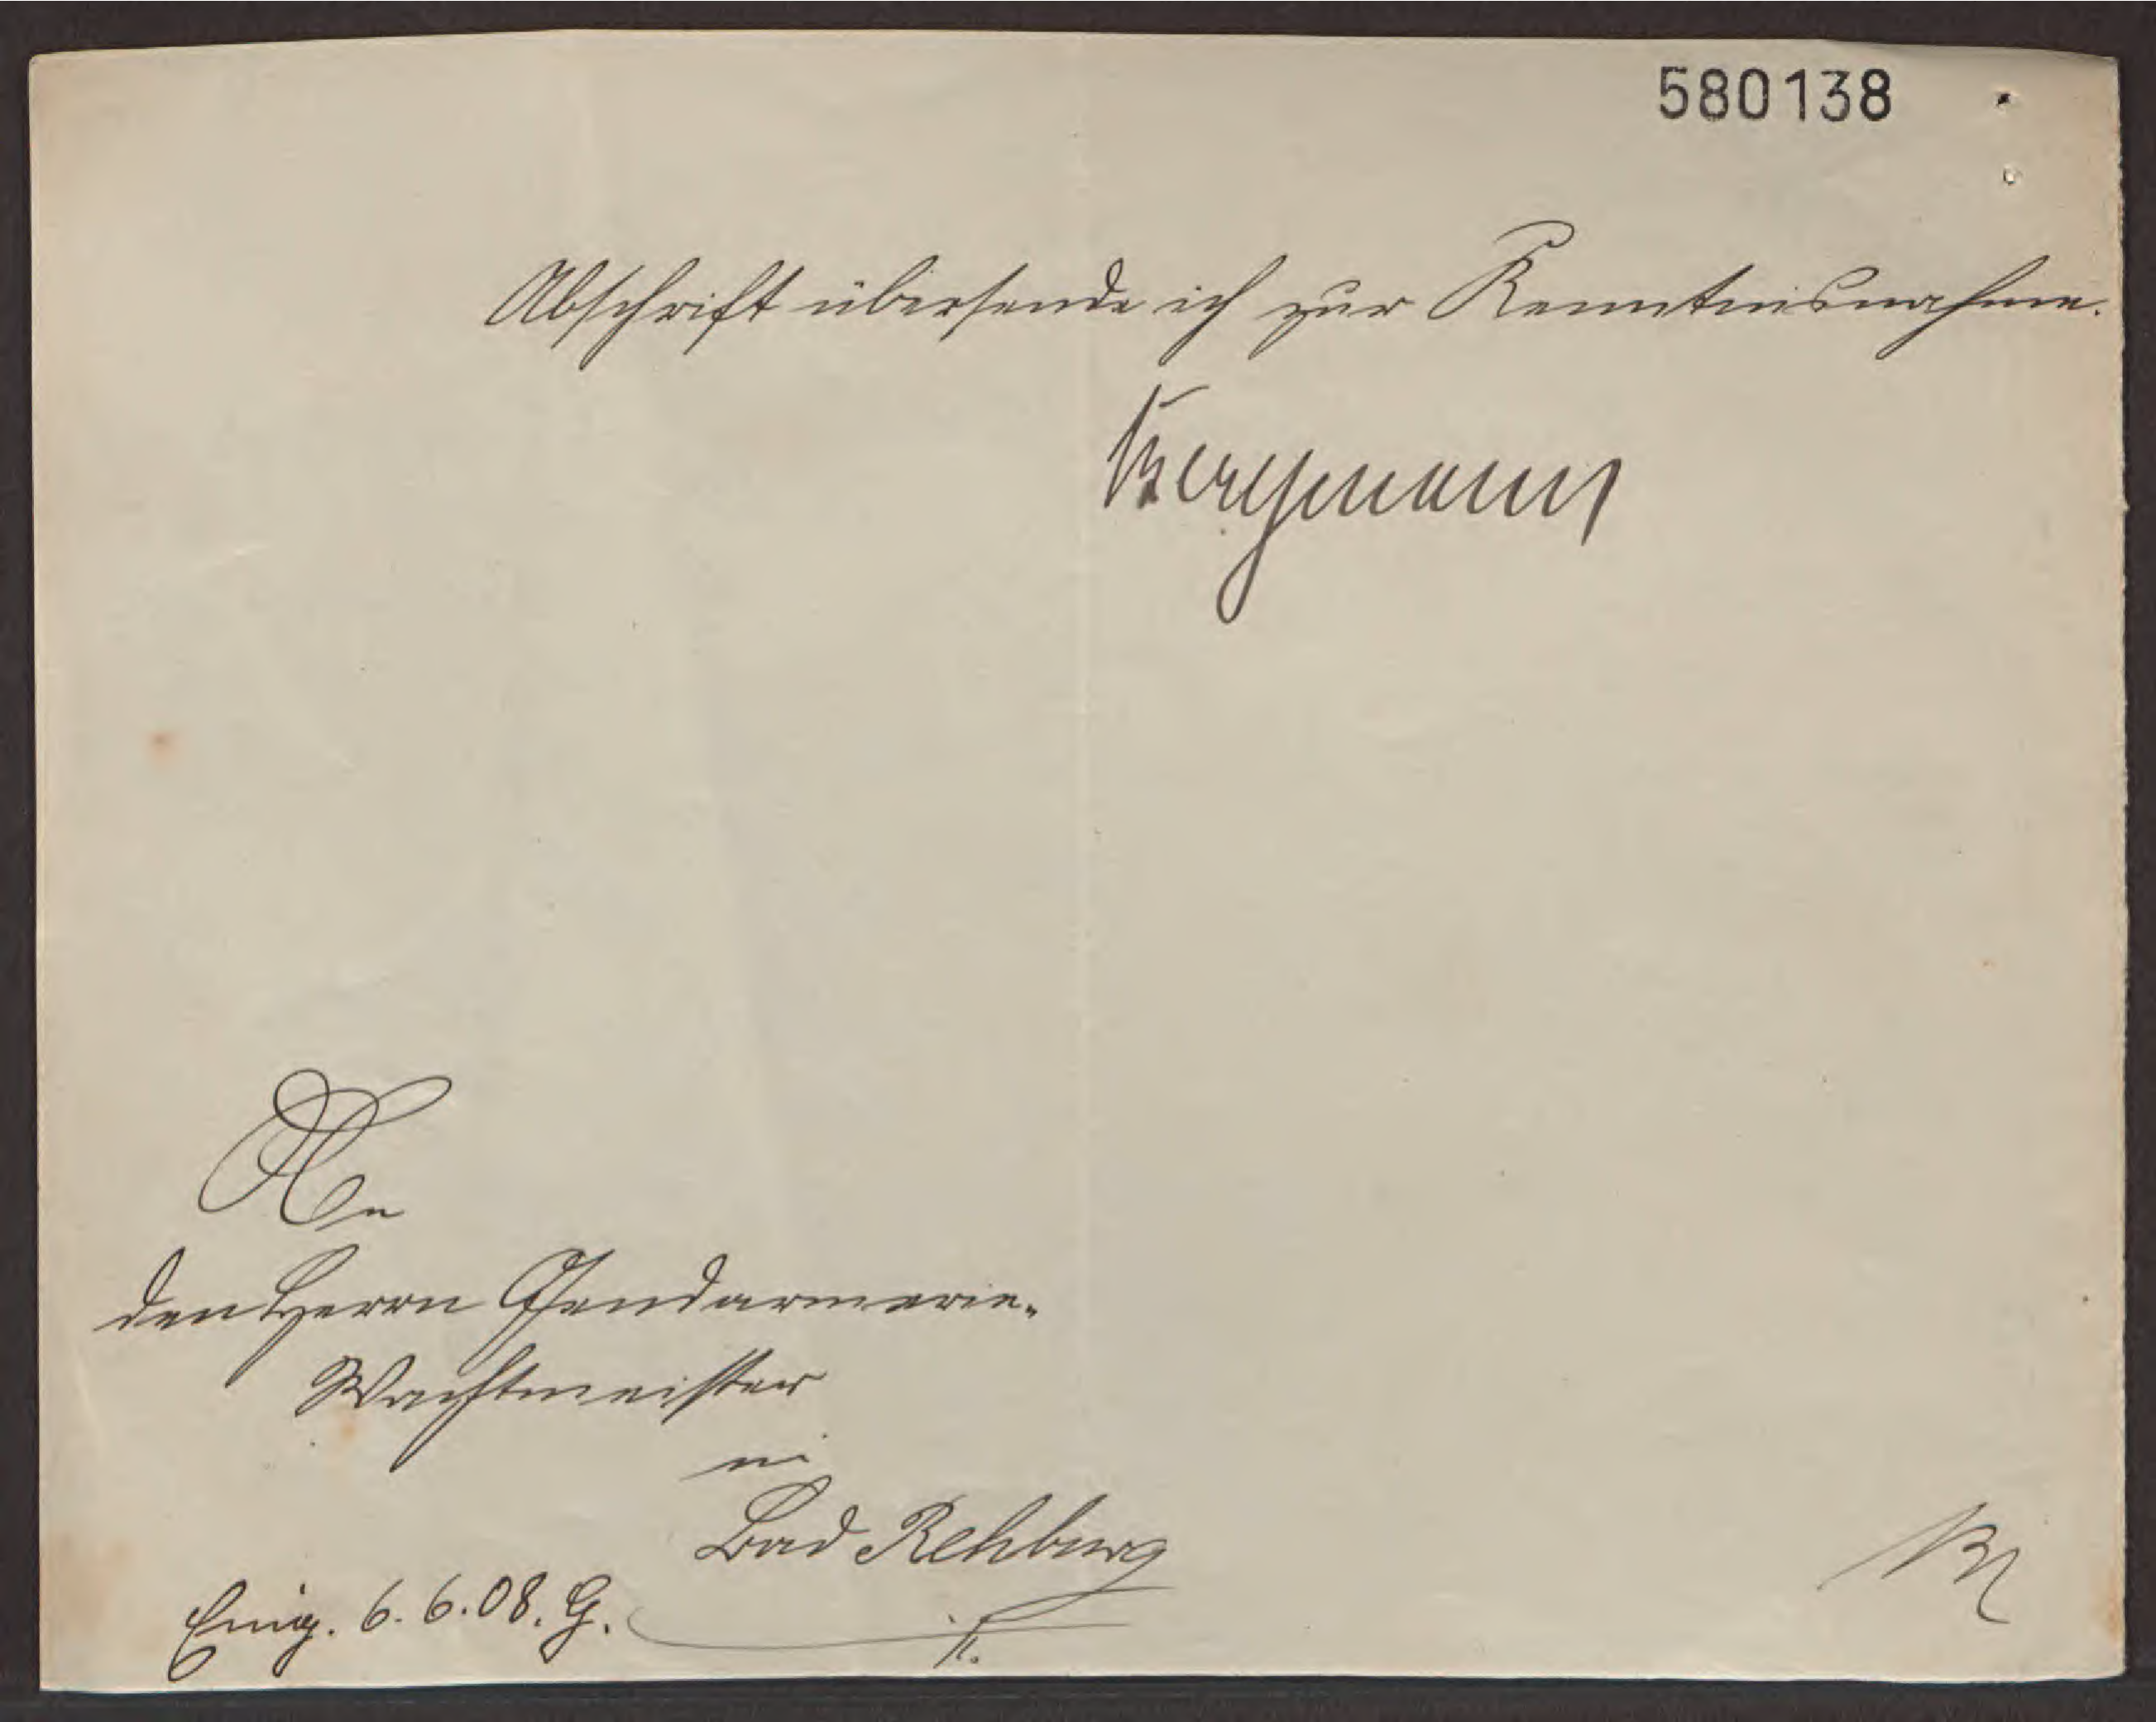 580138
Abschrift übersende ich zur Kenntnisnahme.
Bergmann
An
den Herrn Gendarmerie-
Wachtmeister
in
Bad Rehburg
Eing. 6.6.08. G.